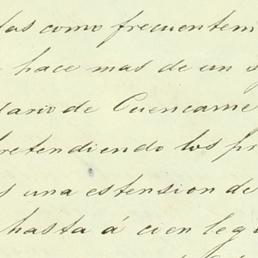 das como frecuentem
hace mas de un s
dario de Cuencame
retendiendo los pr
s una estension de
hasta á cien legu